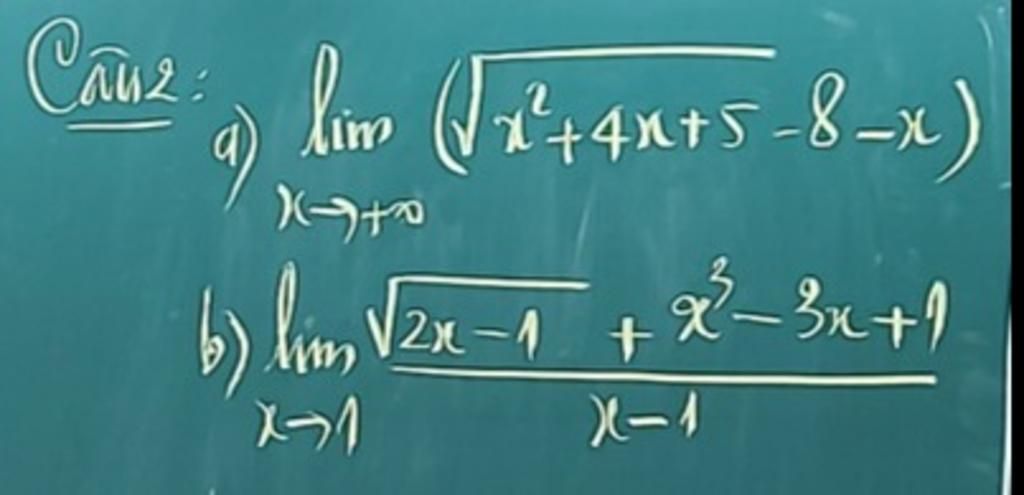 Câu 2:
a) lim (√x²+4x+5 -8-x)
x→+∞
b) lim √2x-1 + x³-3x+1
x→1 x-1